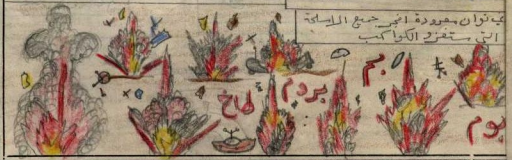 في ثوان معدودة انفجر جميع الاسلحة
التي ستغزو الكواكب
بم
بردم
طاخ
بوم